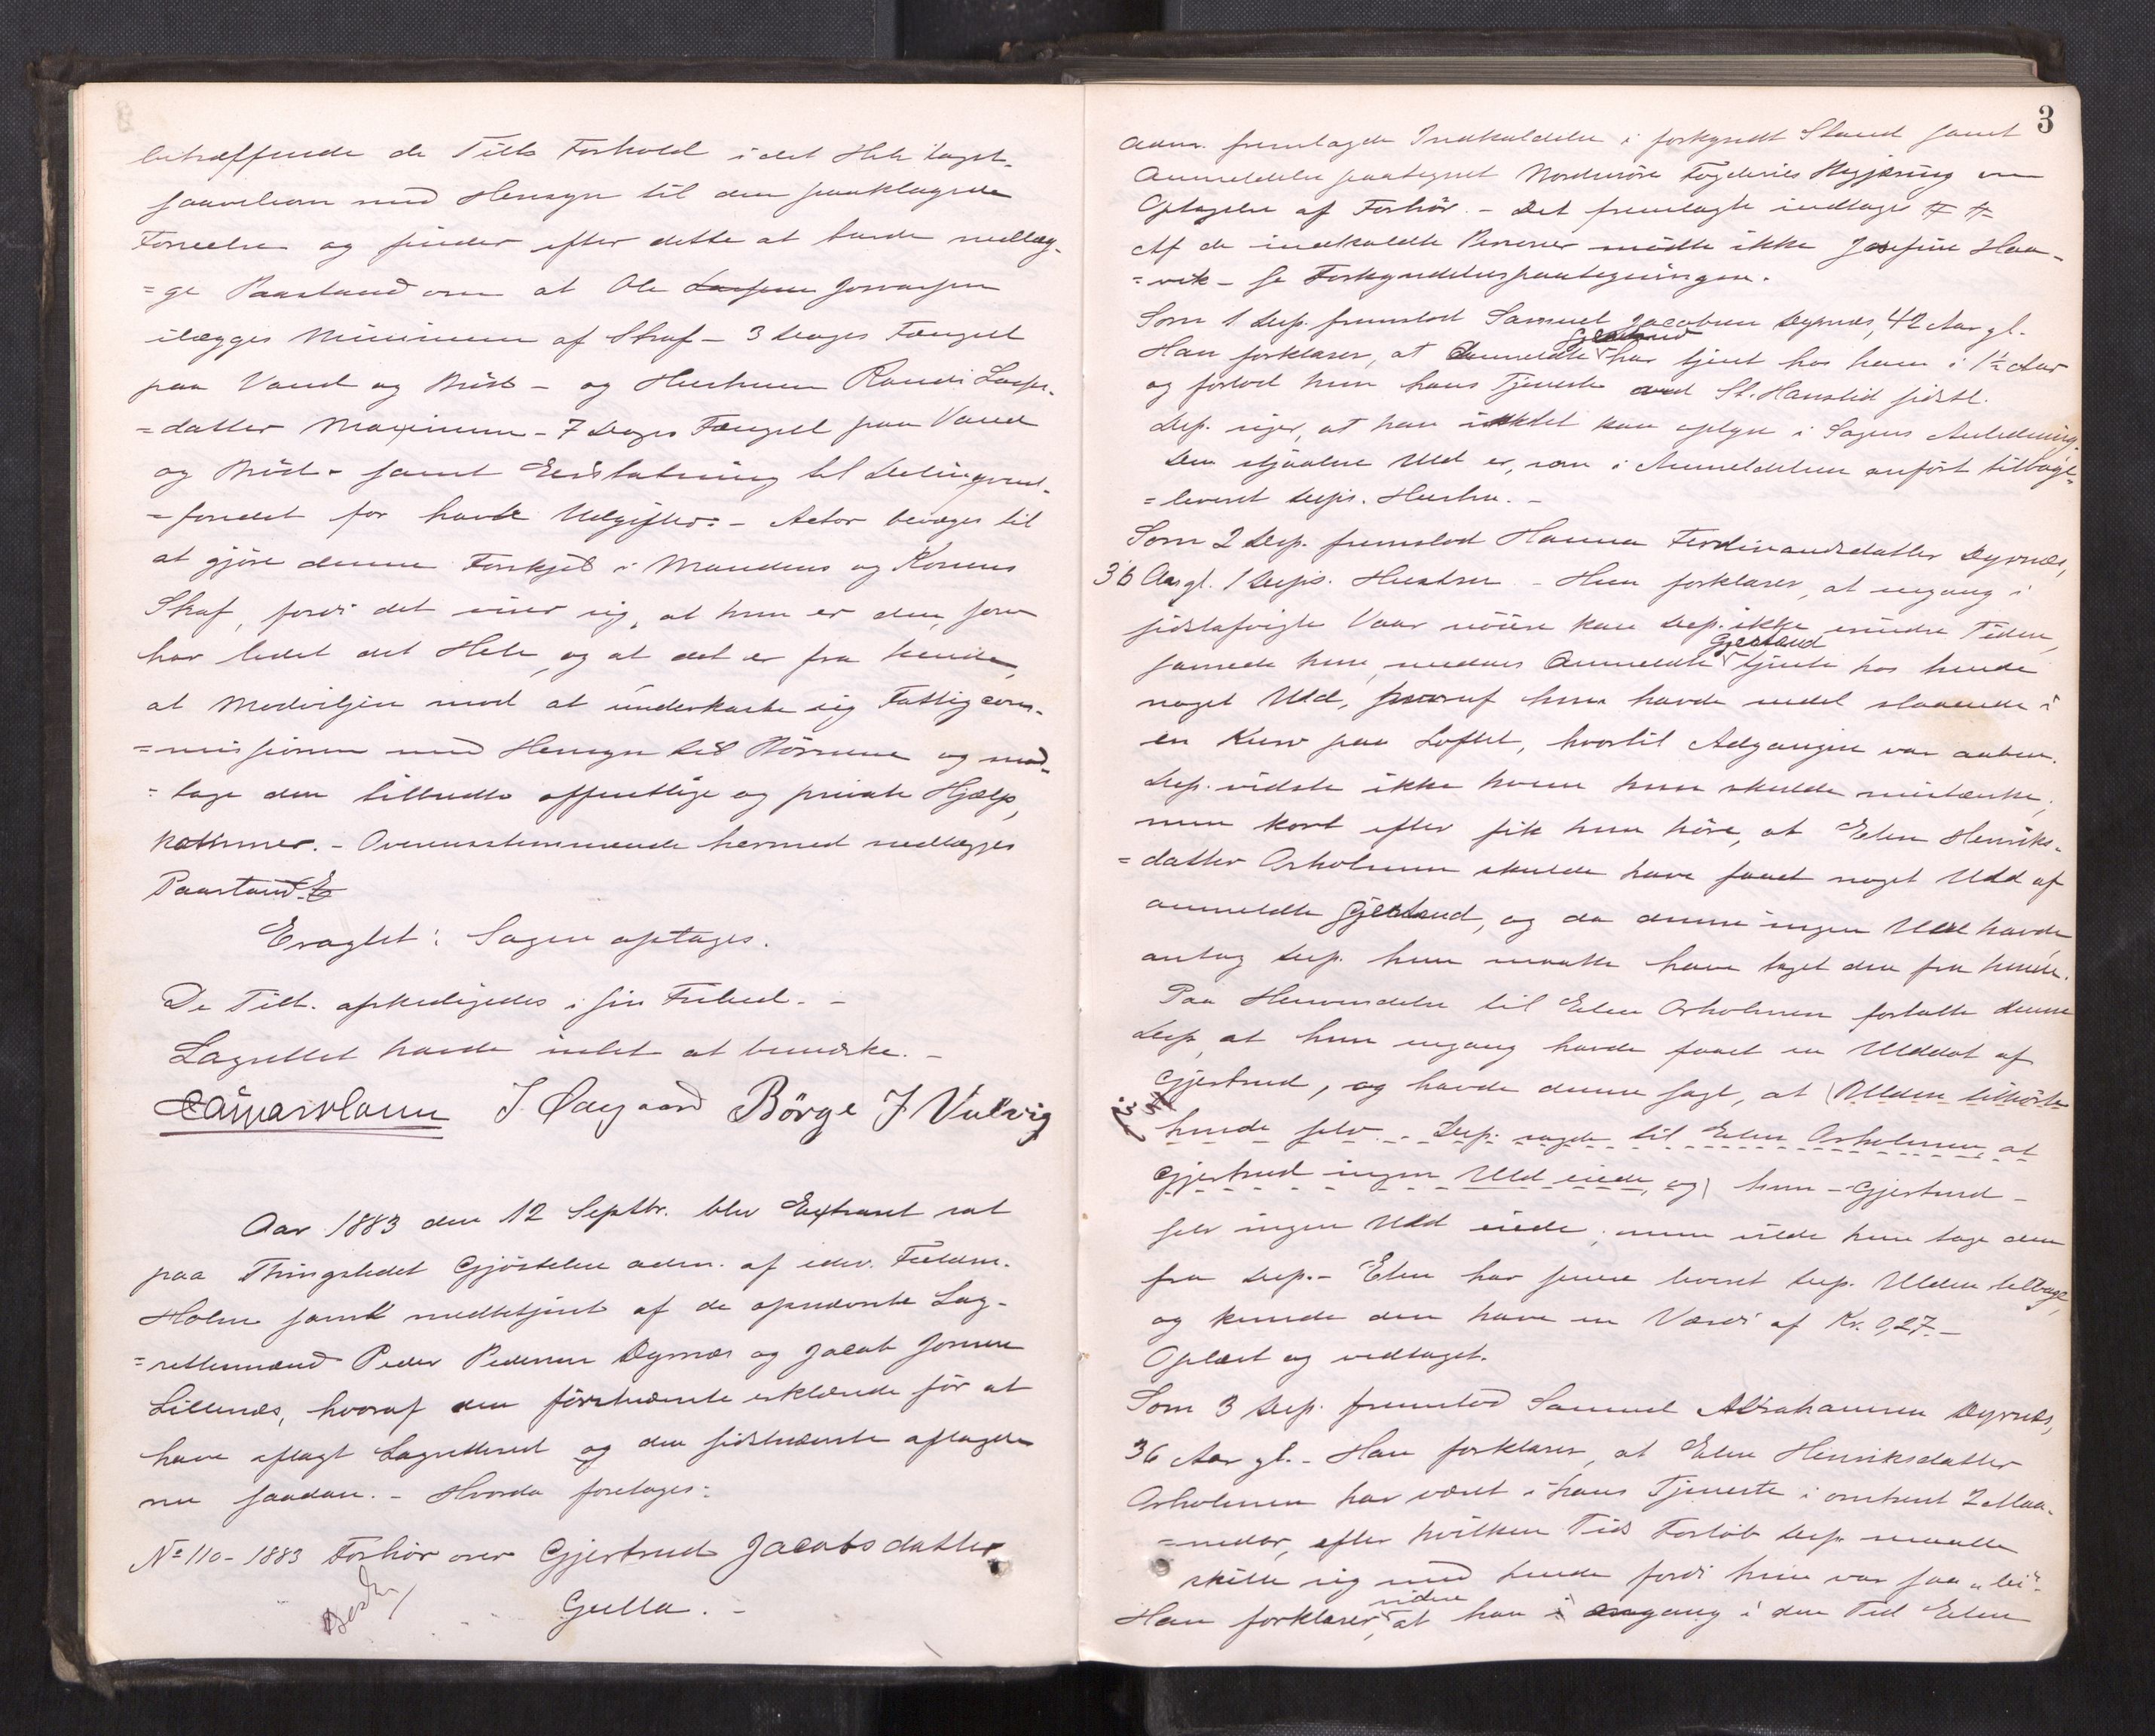 betræffende de Tilts Forhold i det Hele taget,
saavelsom med Hensyn til den paaklagede
Forseelse og finder efter dette at burde nedlæg-
=ge Paastand om at Ole Larsen Jonassen
ilægges Minimum af Straf - 3 Dages Fængsel
paa Vand og Bröd - og Hustruen Randi Lars-
=datter Maximum - 7 Dages Fængsel paa Vand
og Bröd - samt Erstatning til Delinqvent-
=fondet for havte Udgifter. - Actor bevæges til
at gjöre denne Forskjel i Mandens og Konens
Straf, fordi det viser sig, at hun er den, som
har ledet det Hele, og at det er fra hende,
at Modviljen mod at underkaste sig Fattigcom-
=missionen med Hensyn til Börnene og mod-
=tage den tilbudte offentlige og private Hjælp,
kommer. - Overensstemmende hermed nedlægges
Paastand.
Eragtet: Sagen optages.
De Tilt. afskedigedes i sin Frihed. -
Lagrettet havde intet at bemærke. -
J. Ödegaard Börge J Vullvig
Aar 1883 den 12 Septbr. blev Extraret sat
paa Thingstedet Gjöstelen adm. af edsv. Fuldm.
Holm samt medbetjent af de opnævnte Lag-
=rettemænd Peder Pedersen Dyrnæs og Jacob Jonsen
Lillenæs, hvoraf den förstnævnte erklærede för at
have aflagt Lagrettesed og den sidstnævnte aflagde
nu saadan. - Hvorda foretages:
No 110 - 1883 Forhör over Gjertrud Jacobsdatter
Gulla. -
Besk
3
Adm. fremlagde Indkaldelse i forkyndt Stand samt
Anmeldelse paategnet Nordmöre Fogderies Begjæring om
Optagelse af Forhör. - Det fremlagte indtages
Af de indkaldte Personer mödte ikke Josefine Haa-
=vik - se Forkyndelsespaategningen.
Som 1 Dep. fremstod Samuel Jacobsen Dyrnæs, 42 Aar gl.
Gjertrud
Han forklarer, at Anmeldte har tjent hos ham i 1½ Aar
og forlod hun hans Tjeneste ved St. Hanstid sidstl.
Dep. siger, at han intet kan oplyse i Sagens Anledning.
Den stjaalne Uld er, som i Anmeldelsen anfört tilbage-
=leveret Dep's. Hustru. -
Som 2 Dep. fremstod Hanna Ferdinandsdatter Dyrnæs,
36 Aar gl. 1 Dep's. Hustru. - Hun forklarer, at engang i
sidstafvigte Vaar nöiere kan Dep. ikke erindre Tiden,
Gjertrud
savnede hun, medens Anmeldte tjente hos hende
noget Uld, hvoraf hun havde endel staaende i
en Kurv paa Loftet, hvortil Adgangen var aaben.
Dep. vidste ikke hvem hun skulde mistænke,
men kort efter fik hun höre, at Elen Henriks-
=datter Orholmen skulde have faaet noget Uld af
anmeldte Gjertrud, og da denne ingen Uld havde
antog Dep. hun maatte have taget den fra hende.
Paa Henvendelse til Elen Orholmen fortalte denne
Dep. at hun engang havde faaet en Olddot af
Gjertrud, og havde denne sagt, at (Ulden tilhörte
hende selv. Dep. sagde til Elen Orholmen, at
Gjertrud ingen Uld eiede, og) hun - Gjertrud -
selv ingen Uld eiede, men vilde hun tage den
fra Dep. - Elen har senere leveret Dep. Ulden tilbage,
og kunde den have en Værdi af Kr. 0,27. -
Oplæst og vedtaget.
Som 3 Dep. fremstod Samuel Abrahamsen Dyrnæs,
36 Aar gl. - Han forklarer, at Elen Henriksdatter
Orholmen har været i hans Tjeneste i omtrent 2 Maa-
=neder, efter hvilken Tids Forlöb Dep. maatte
skille sig med hende fordi hun var saa "lei".
videre
Han forklarer, at han engang i den Tid Elen